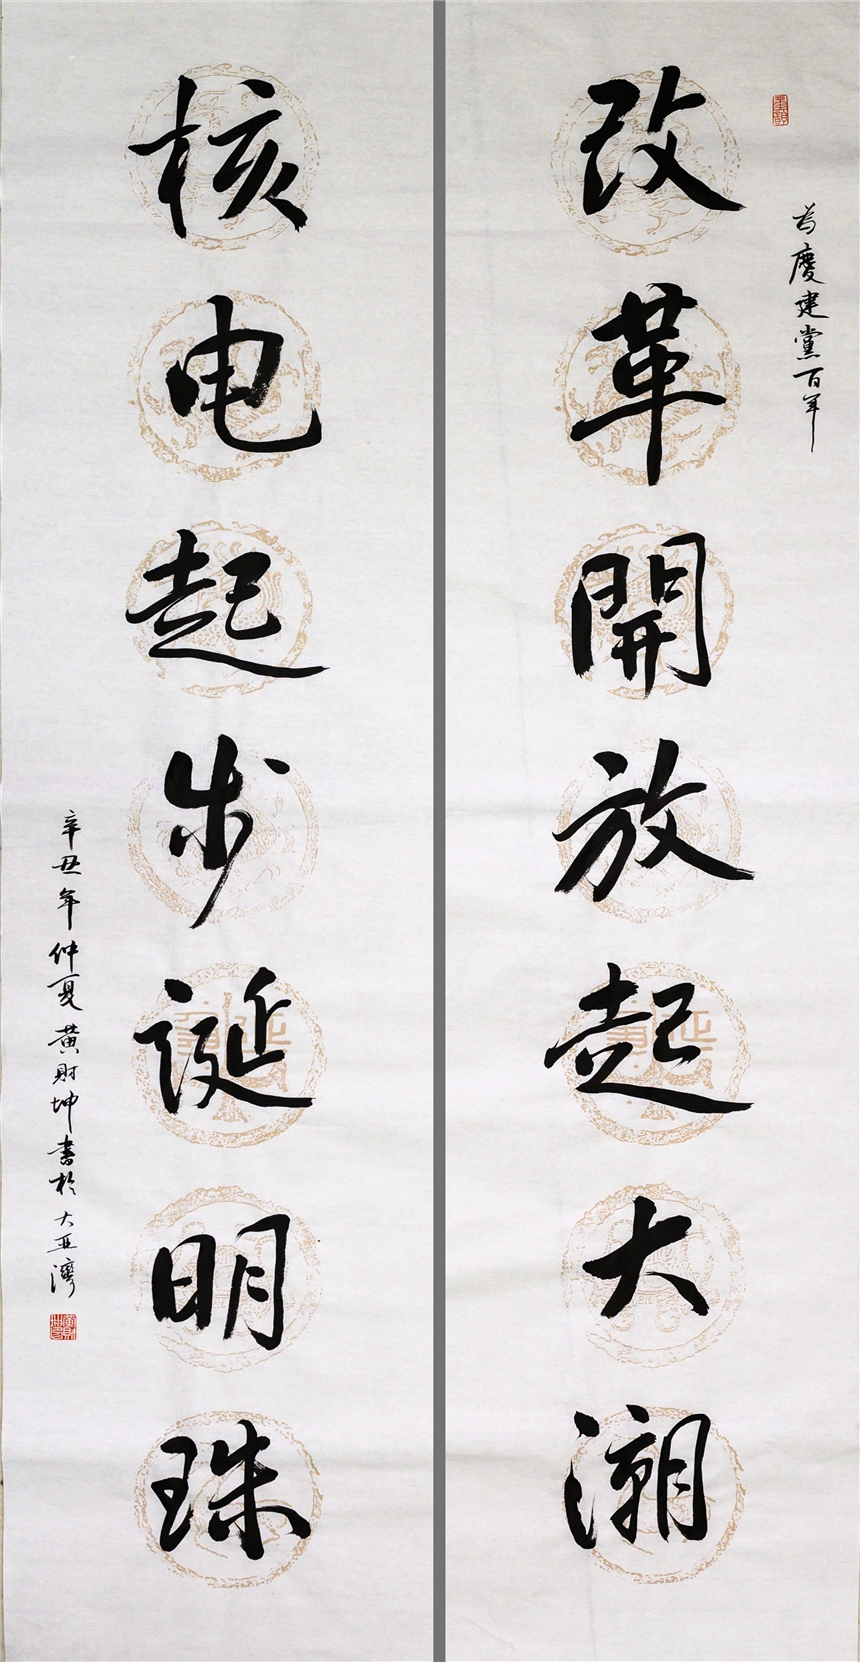 為慶建黨百年
改革開放起大潮
核电起步誕明珠
辛丑年仲夏黄財坤書於大亚灣